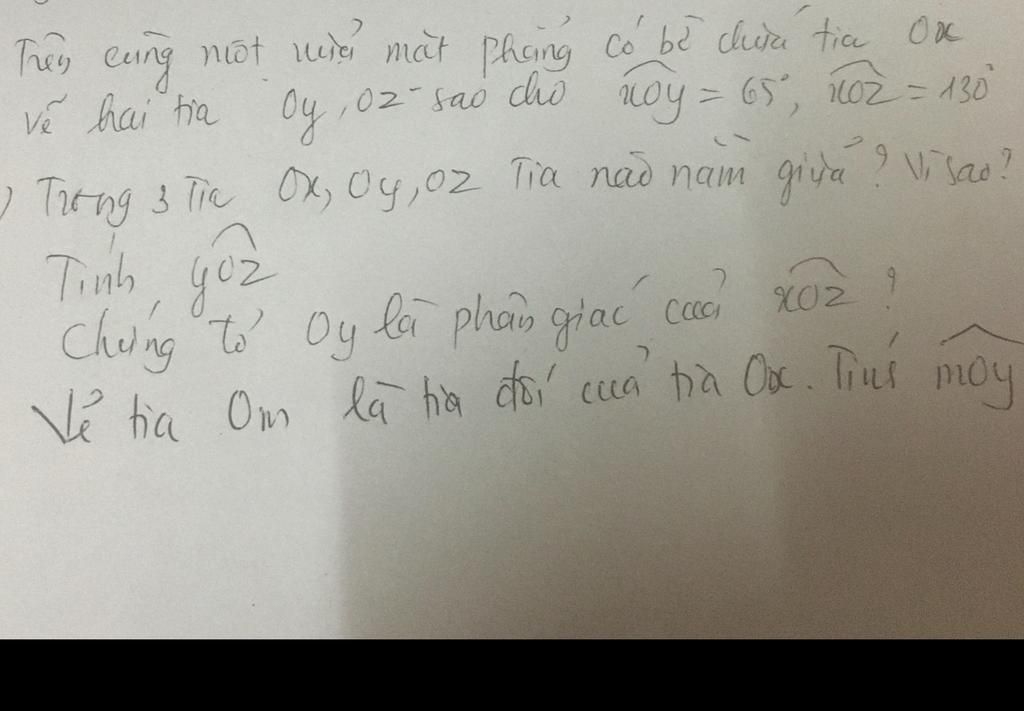 Trên cùng một nửa mặt phẳng có bờ chứa tia Ox
vẽ hai tia Oy, Oz sao cho xOy = 65°, xOz = 130°
) Trong 3 Tia Ox, Oy, Oz Tia nào nằm giữa? Vì sao?
Tính yOz
Chứng tỏ Oy là phân giác của xOz?
Vẽ tia Om là tia đối của tia Ox. Tính mOy